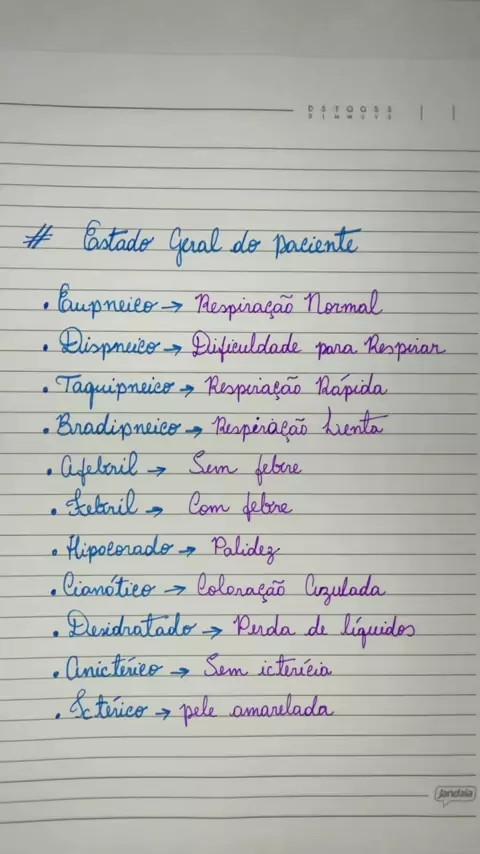 D S T Q Q S S
D L M M J V S
# Estado Geral do paciente
• Eupneico → Respiração Normal
• Dispneico → Dificuldade para Respirar
• Taquipneico → Respiração Rápida
• Bradipneico → Respiração Lenta
• Afebril → Sem febre
• Febril → Com febre
• Hipocorado → Palidez
• Cianótico → Coloração Azulada
• Desidratado → Perda de líquidos
• Anictérico → Sem icterícia
• Ictérico → pele amarelada
Jandaia